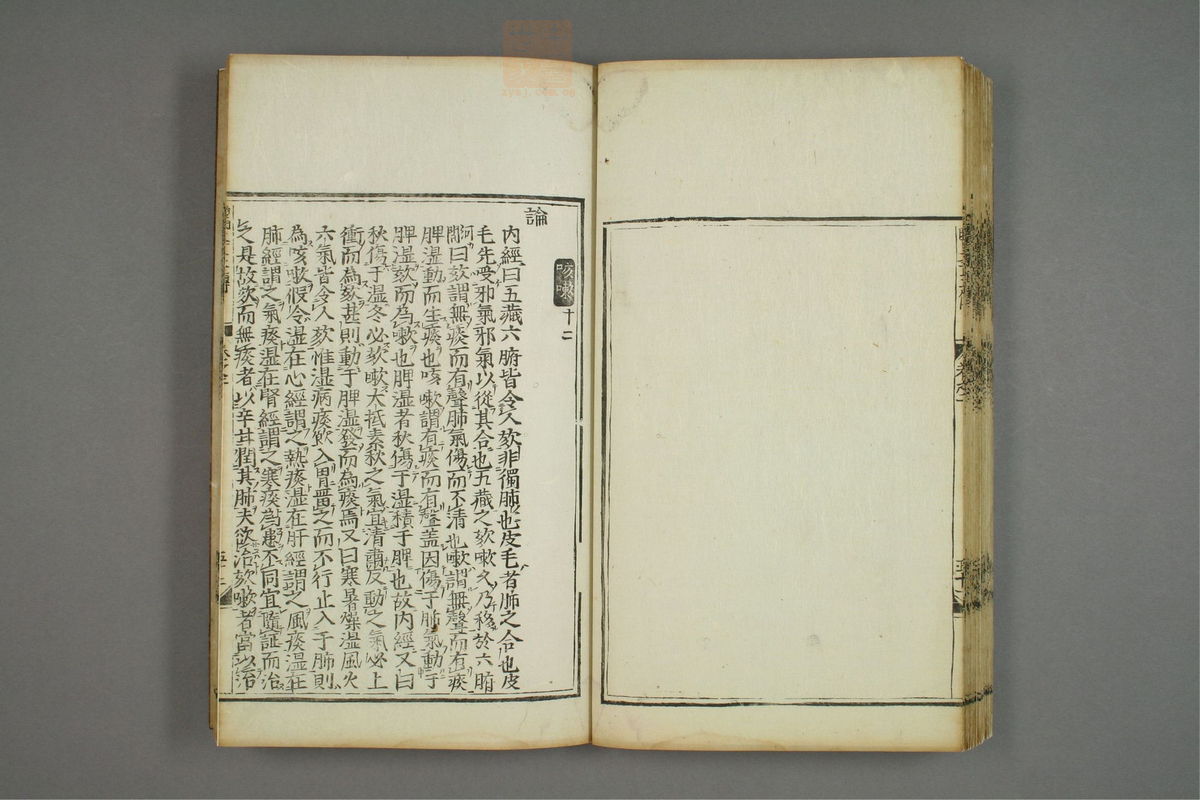 咳嗽 十二
論
內經曰五藏六腑皆令人欬非獨肺也皮毛者肺之合也皮
毛先受邪氣邪氣以從其合也五藏之欬嗽久乃移於六腑
河間曰欬謂無痰而有聲肺氣傷而不清也嗽謂無聲而有痰
脾濕動而生痰也咳嗽謂有痰而有聲盖因傷于肺氣動于
脾濕欬而為嗽也脾濕者秋傷于濕積于脾也故內經又曰
秋傷于濕冬必欬嗽大抵素秋之氣宜清肅反動之氣必上
衝而為欬甚則動于脾濕發而為痰焉又曰寒暑燥濕風火
六氣皆令人欬惟濕病痰飲入胃畱之而不行止入于肺則
為咳嗽假令濕在心經謂之熱痰濕在肝經謂之風痰濕在
肺經謂之氣痰濕在腎經謂之寒痰為患不同宜隨証而治
之是故欬而無痰者以辛甘潤其肺夫欲治欬嗽者當以治